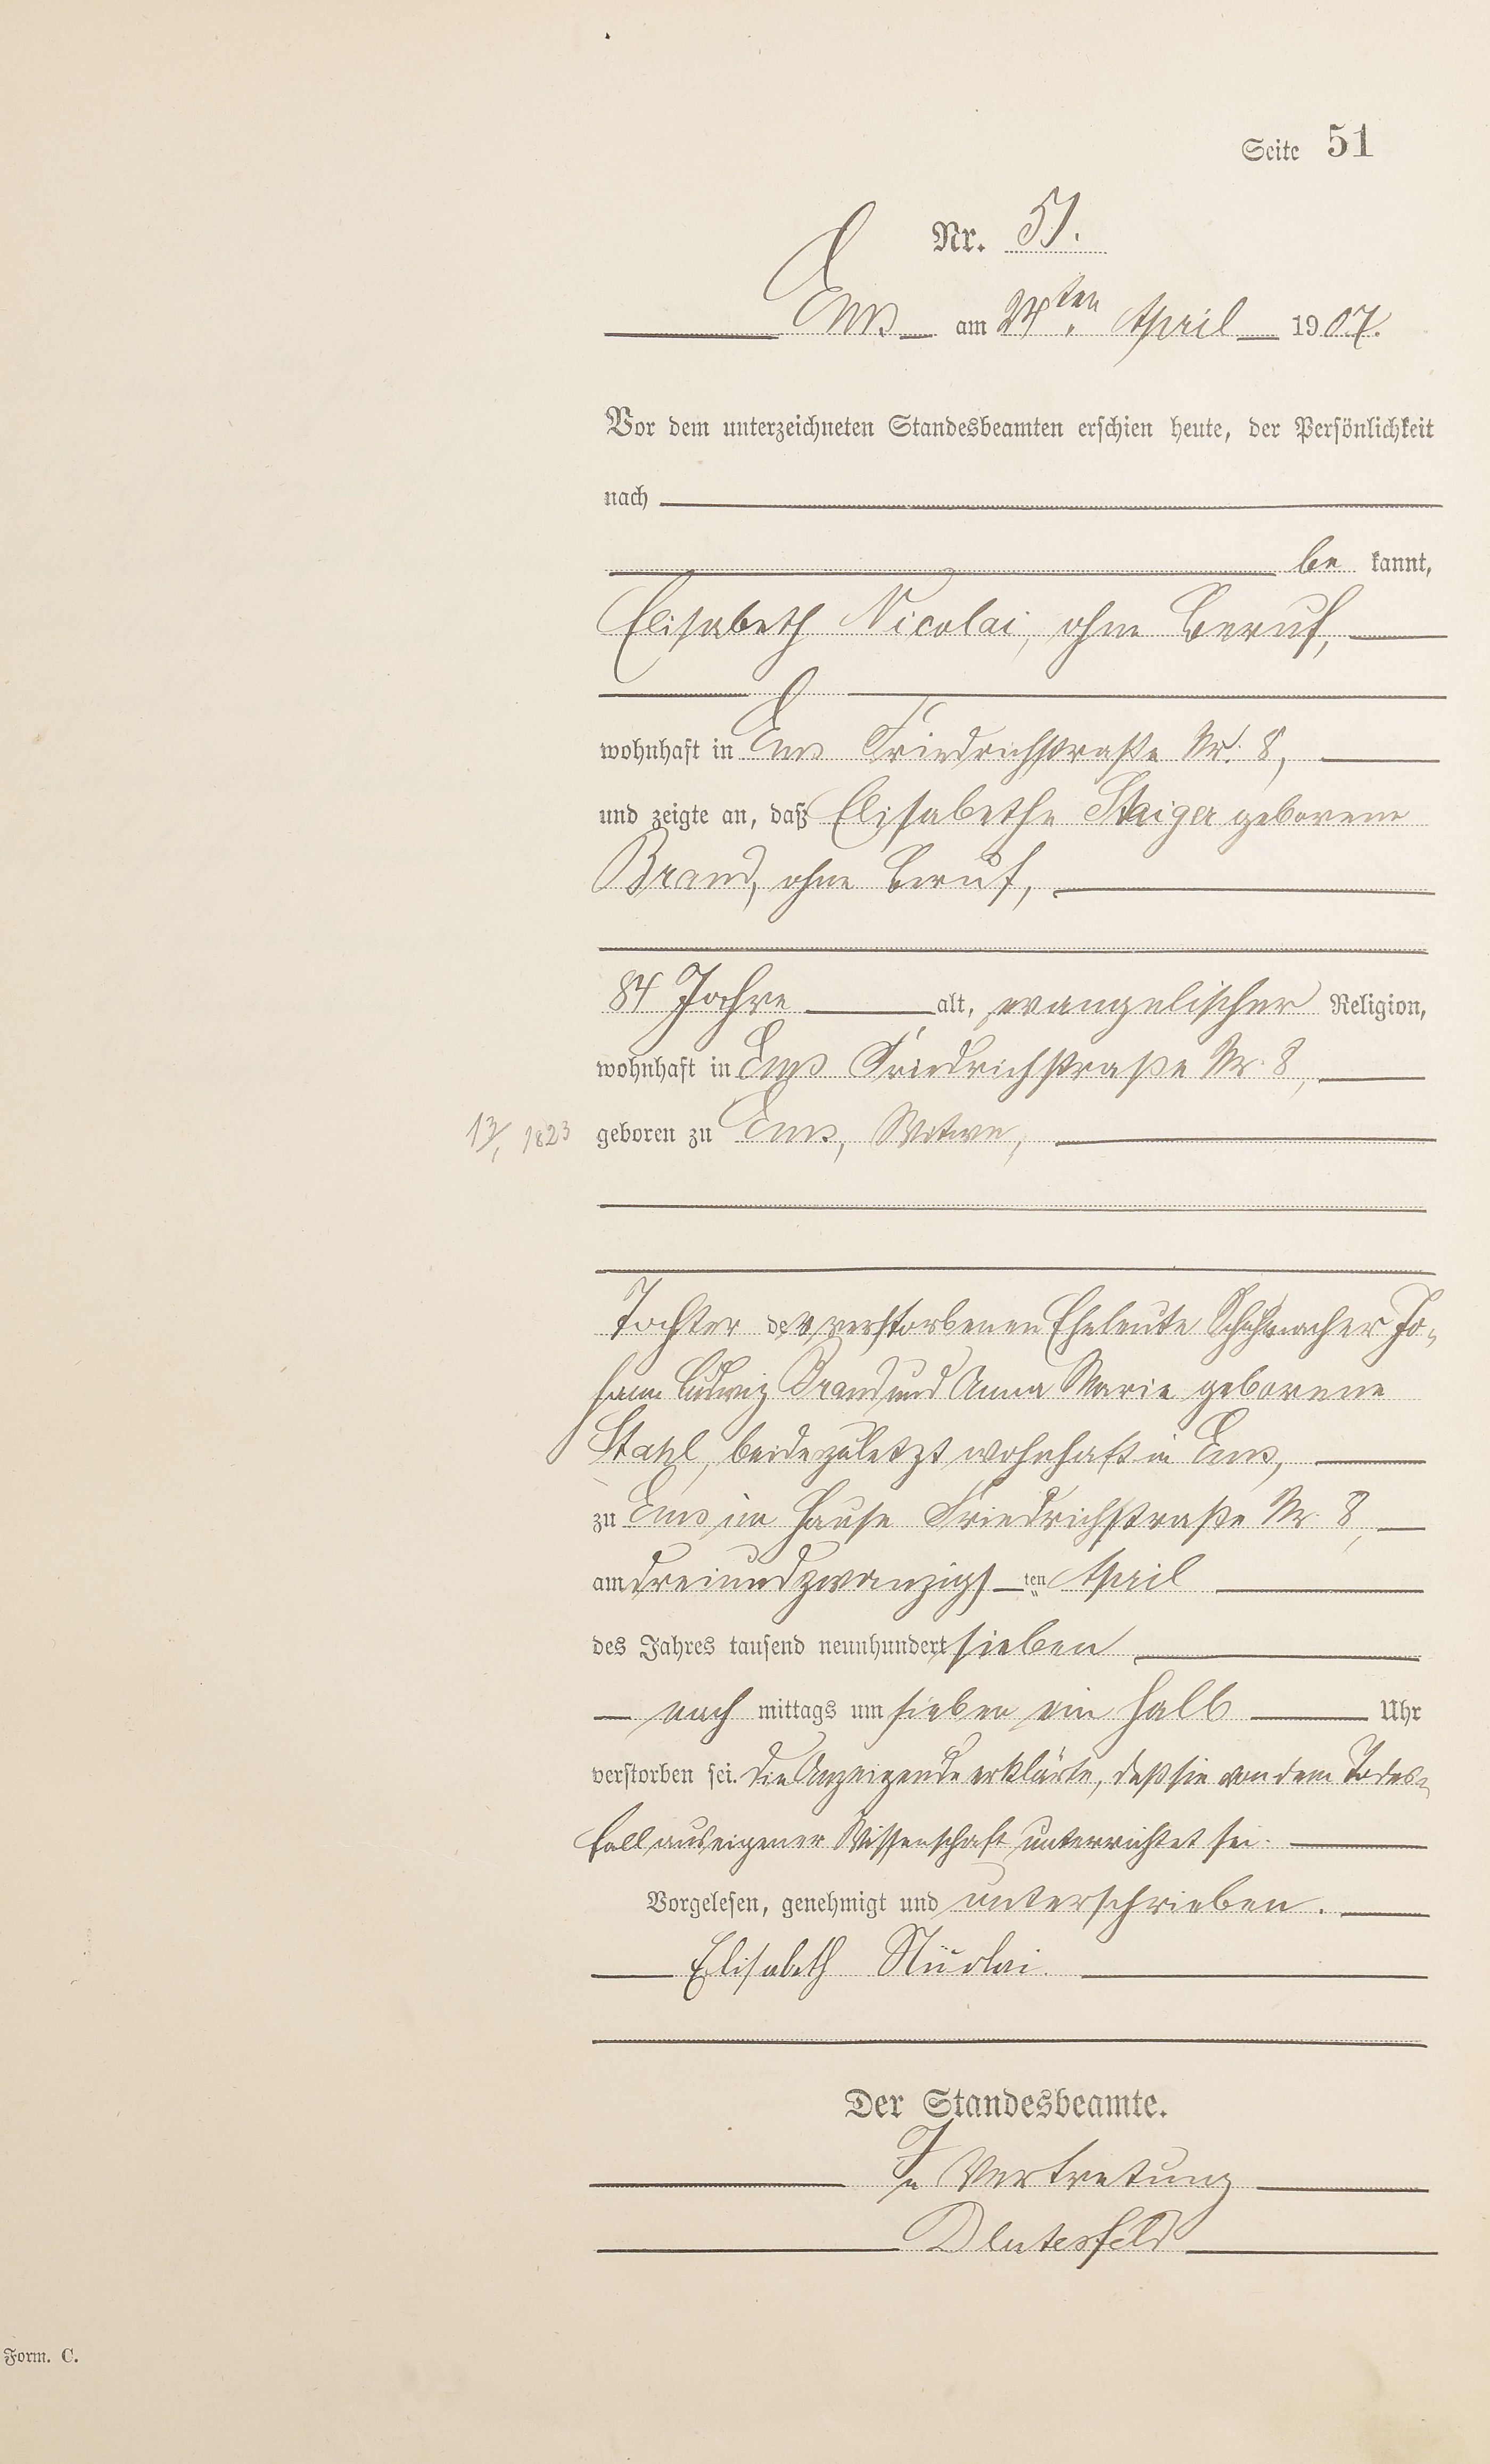 Seite 51
Nr. 51.
Ems am 24ten April 1907.
Vor dem unterzeichneten Standesbeamten erschien heute, der Persönlichkeit
nach
be kannt,
Elisabeth Nicolai, ohne Beruf,
wohnhaft in Ems Friedrichstraße Nr. 8,
und zeigte an, daß Elisabethe Staiger geborene
Brand, ohne Beruf,
84 Jahre alt, evangelischer Religion,
wohnhaft in Ems Friedrichstraße Nr. 8,
1823 geboren zu Ems, Witwe,
Tochter der verstorbenen Eheleute Schuhmacher Jo-
hann Ludwig Brand und Anna Marie geborene
Stahl, beide zuletzt wohnhaft in Ems,
zu Ems im Hause Friedrichstraße Nr. 8,
am dreiundzwanzigsten April
des Jahres tausend neunhundert sieben
nach mittags um sieben ein halb Uhr
verstorben sei. Die Anzeigende erklärte, daß sie von dem Todes-
fall aus eigener Wissenschaft unterrichtet sei.
Vorgelesen, genehmigt und unterschrieben.
Elisabeth Nicolai.
Der Standesbeamte.
In Vertretung
Form. C.